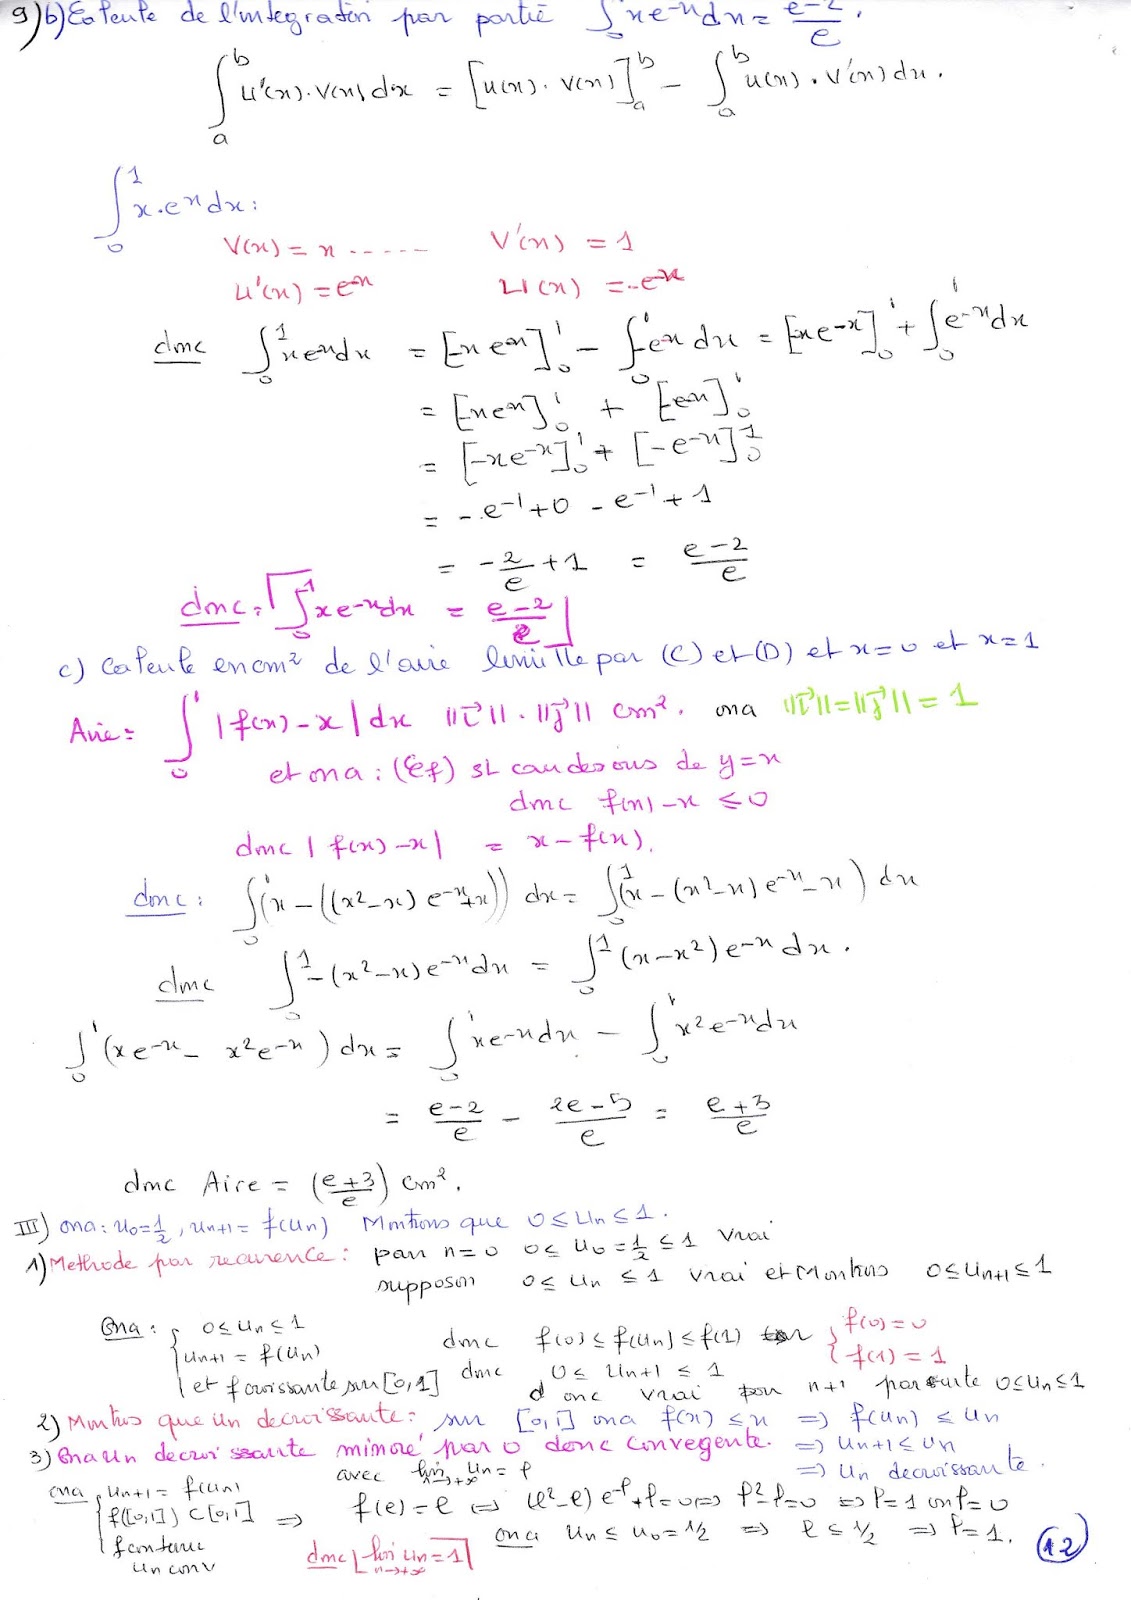 9) b) Calcule de l'integration par partie ∫₀ x e^-x dx = (e-2)/e.
∫ₐᵇ u'(x).v(x) dx = [u(x).v(x)]ₐᵇ - ∫ₐᵇ u(x).v'(x) dx.
∫₀¹ x.e^x dx:
V(x) = x ...... V'(x) = 1
u'(x) = e^-x U(x) = -e^-x
donc ∫₀¹ x e^-x dx = [-x e^-x]₀¹ - ∫₀¹ -e^-x dx = [-x e^-x]₀¹ + ∫₀¹ e^-x dx
= [-x e^-x]₀¹ + [-e^-x]₀¹
= [-x e^-x]₀¹ + [-e^-x]₀¹
= -e^-1 + 0 - e^-1 + 1
= -2/e + 1 = (e-2)/e
donc: ∫₀¹ x e^-x dx = (e-2)/e
c) Calcule en cm² de l'aire limitte par (C) et (D) et x=0 et x=1
Aire = ∫₀¹ |f(x)-x| dx ||i|| . ||j|| cm². ona ||i|| = ||j|| = 1
et ona: (Cf) st au desous de y=x
donc f(x)-x ≤ 0
donc |f(x)-x| = x-f(x).
donc: ∫₀¹ (x-((x²-x) e^-x+x)) dx = ∫₀¹ (x-(x²-x) e^-x-x) dx
donc ∫₀¹ -(x²-x) e^-x dx = ∫₀¹ (x-x²) e^-x dx.
∫₀¹ (x e^-x - x² e^-x) dx = ∫₀¹ x e^-x dx - ∫₀¹ x² e^-x dx
= (e-2)/e - (2e-5)/e = (e+3)/e
donc Aire = ((e+3)/e) cm².
III) ona: u₀=1/2, un+1 = f(un) Montrons que 0 ≤ Un ≤ 1.
1) Methode par recurence: pour n=0 0 ≤ U₀=1/2 ≤ 1 vrai
supposon 0 ≤ Un ≤ 1 vrai et Montrons 0≤Un+1≤1
Ona: { 0≤Un≤1 donc f(0) ≤ f(Un) ≤ f(1) car { f(0)=0
un+1 = f(Un) donc 0 ≤ Un+1 ≤ 1 f(1) = 1
et f croissante sur [0,1] donc vrai pour n+1 par suite 0≤Un≤1
2) Montrons que Un decroissante: sur [0,1] ona f(x) ≤ x ⇒ f(Un) ≤ Un
3) Ona Un decroissante minoré par 0 donc convegente. ⇒ Un+1 ≤ Un
avec lim n→+∞ Un = ℓ ⇒ Un decroissante.
ona { Un+1 = f(Un)
f([0,1]) ⊂ [0,1] ⇒ f(ℓ) = ℓ ⇔ (ℓ²-ℓ) e^-ℓ+ℓ=ℓ ⇔ ℓ²-ℓ=0 ⇔ ℓ=1 ou ℓ=0
f continue ona Un ≤ U₀=1/2 ⇒ ℓ ≤ 1/2 ⇒ ℓ=1.
Un conv donc lim n→+∞ Un = 1
12